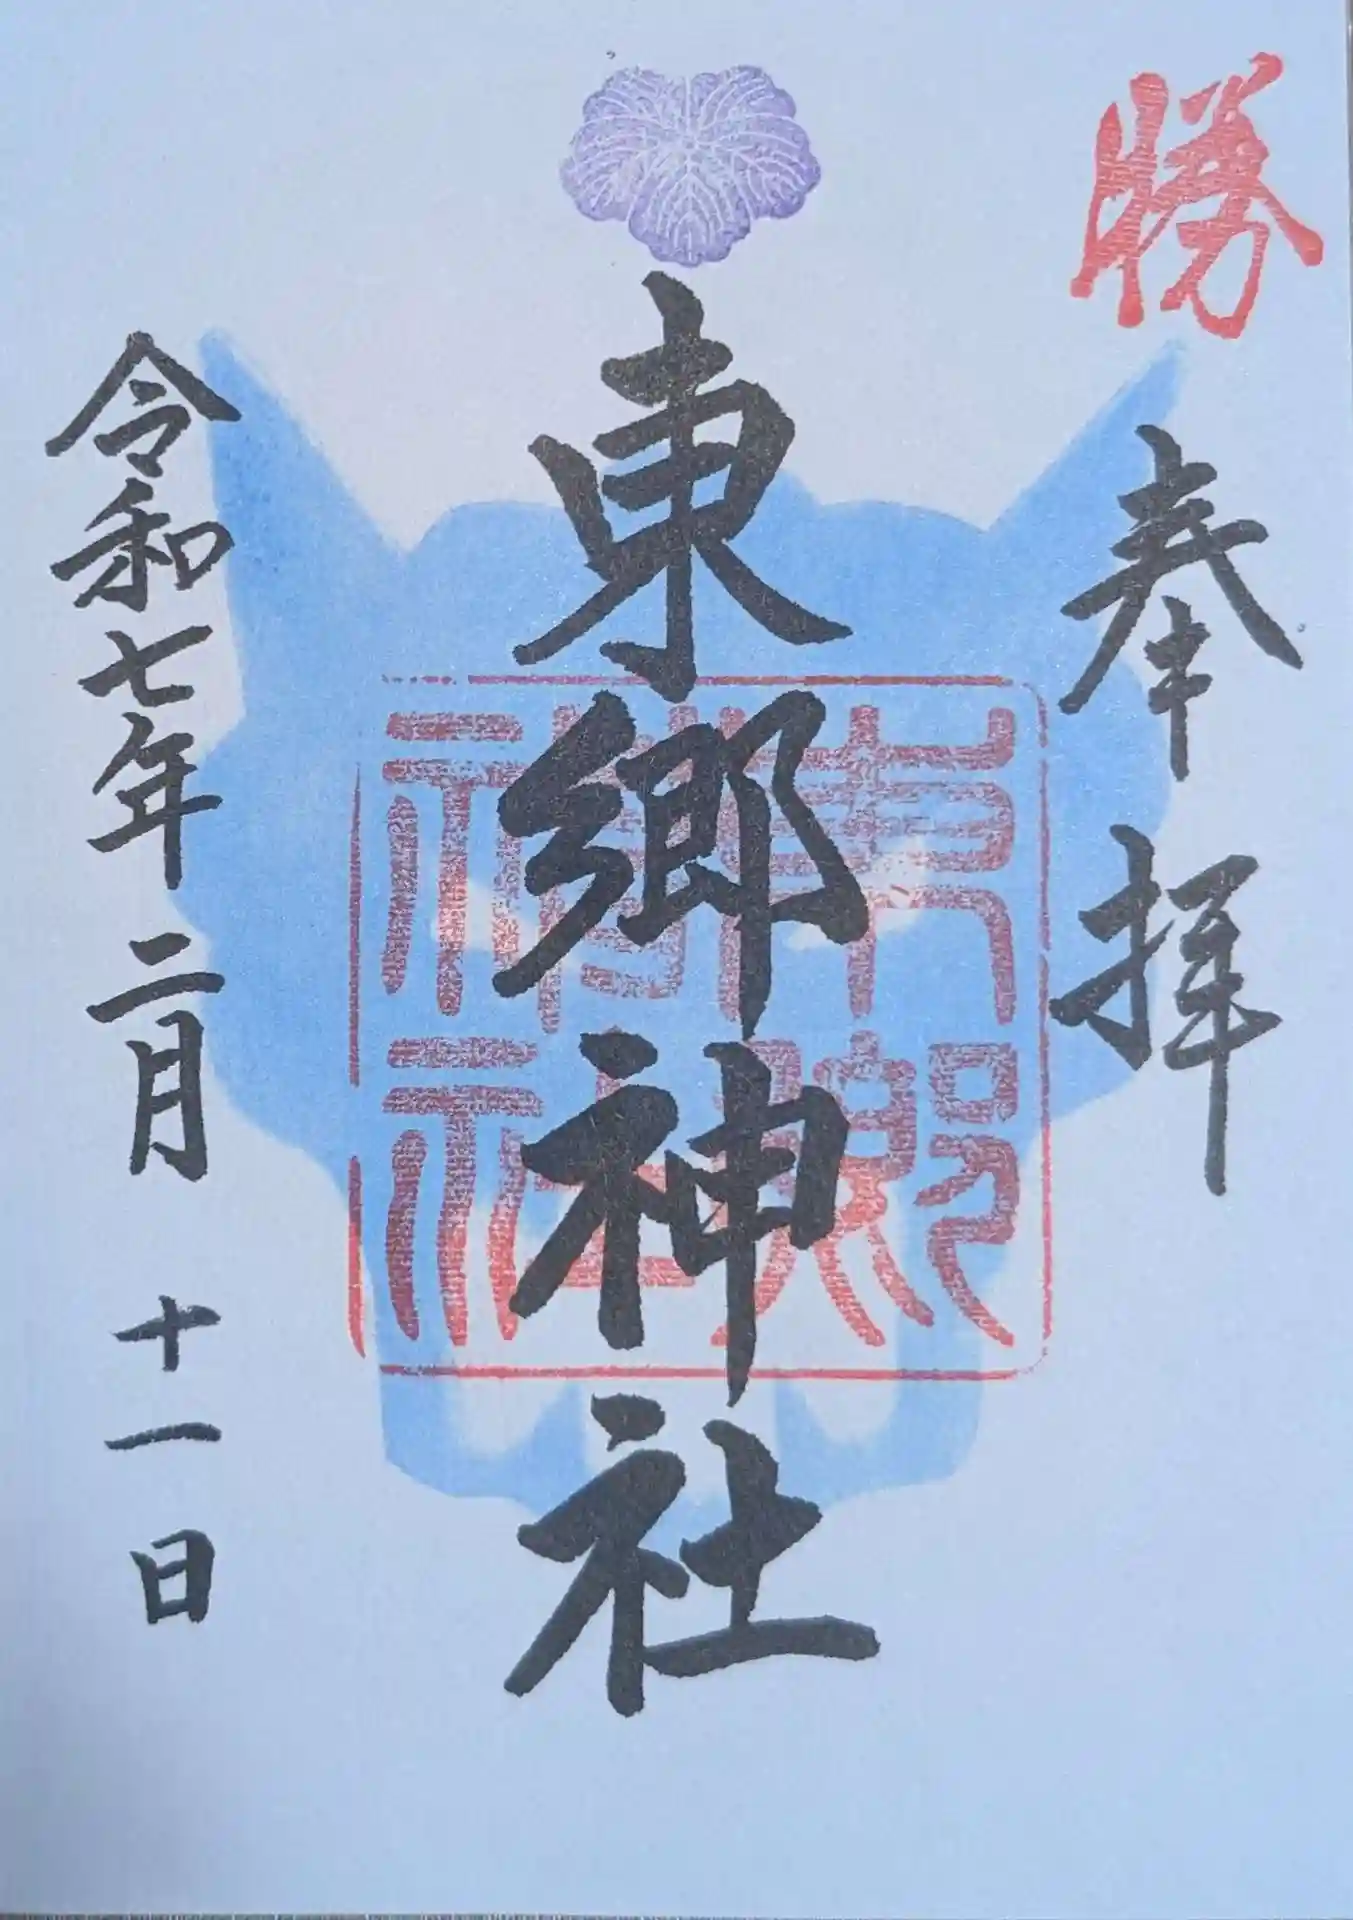 勝
奉拝
東郷神社
令和七年二月十一日